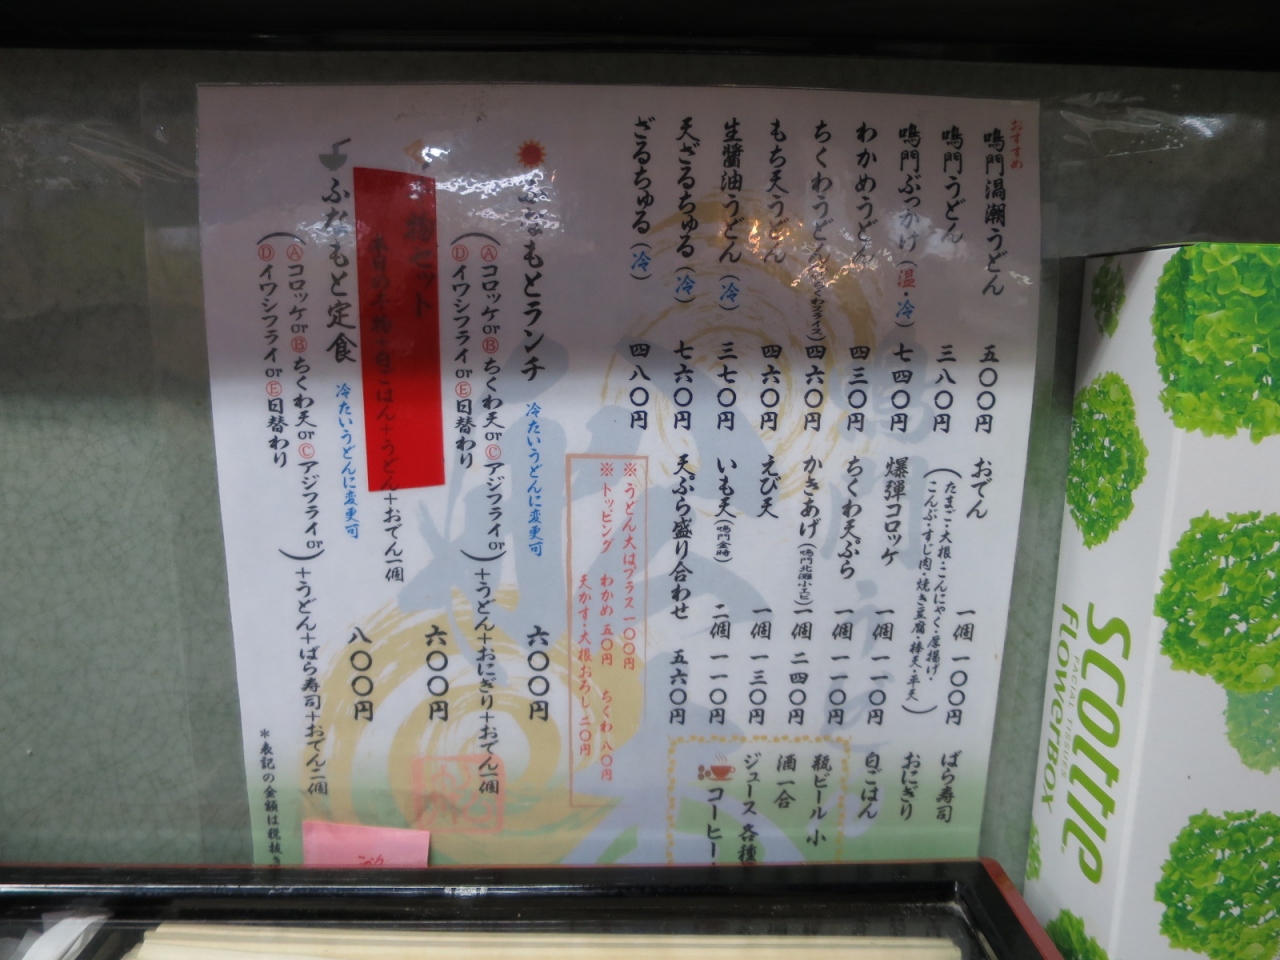 おすすめ
鳴門渦潮うどん 五〇〇円
鳴門うどん 三八〇円
鳴門ぶっかけ（温・冷） 七四〇円
わかめうどん 四三〇円
ちくわうどん（ちくわフライス） 四六〇円
もち天うどん 四六〇円
生醤油うどん（冷） 三七〇円
天ざるちゅる（冷） 七六〇円
ざるちゅる（冷） 四八〇円
おでん 一個 一〇〇円
（たまご・大根・こんにゃく・厚揚げ・
こんぶ・すじ肉・焼き豆腐・棒天・平天）
爆弾コロッケ 一個 一一〇円
ちくわ天ぷら 一個 一一〇円
かきあげ（鳴門北灘小エビ） 一個 二四〇円
えび天 一個 一三〇円
いも天（鳴門金時） 二個 一一〇円
天ぷら盛り合わせ 五六〇円
※うどん大はプラス一〇〇円
※トッピング わかめ五〇円 ちくわ八〇円
天かす・大根おろし二〇円
ばら寿司
おにぎり
白ごはん
瓶ビール 小
酒一合
ジュース 各種
コーヒー
ふなもとランチ 冷たいうどんに変更可 六〇〇円
（ⒶコロッケorⒷちくわ天orⒸアジフライor
ⒹイワシフライorⒺ日替わり）＋うどん＋おにぎり＋おでん一個
物セット 六〇〇円
ごはん＋うどん＋おでん一個
ふなもと定食 冷たいうどんに変更可 八〇〇円
（Ⓐコロッケ orⒷちくわ天orⒸアジフライor
ⒹイワシフライorⒺ日替わり）＋うどん＋ばら寿司＋おでん二個
＊表記の金額は税抜き
scottie
FACIAL TISSUES
FLOWERBOX